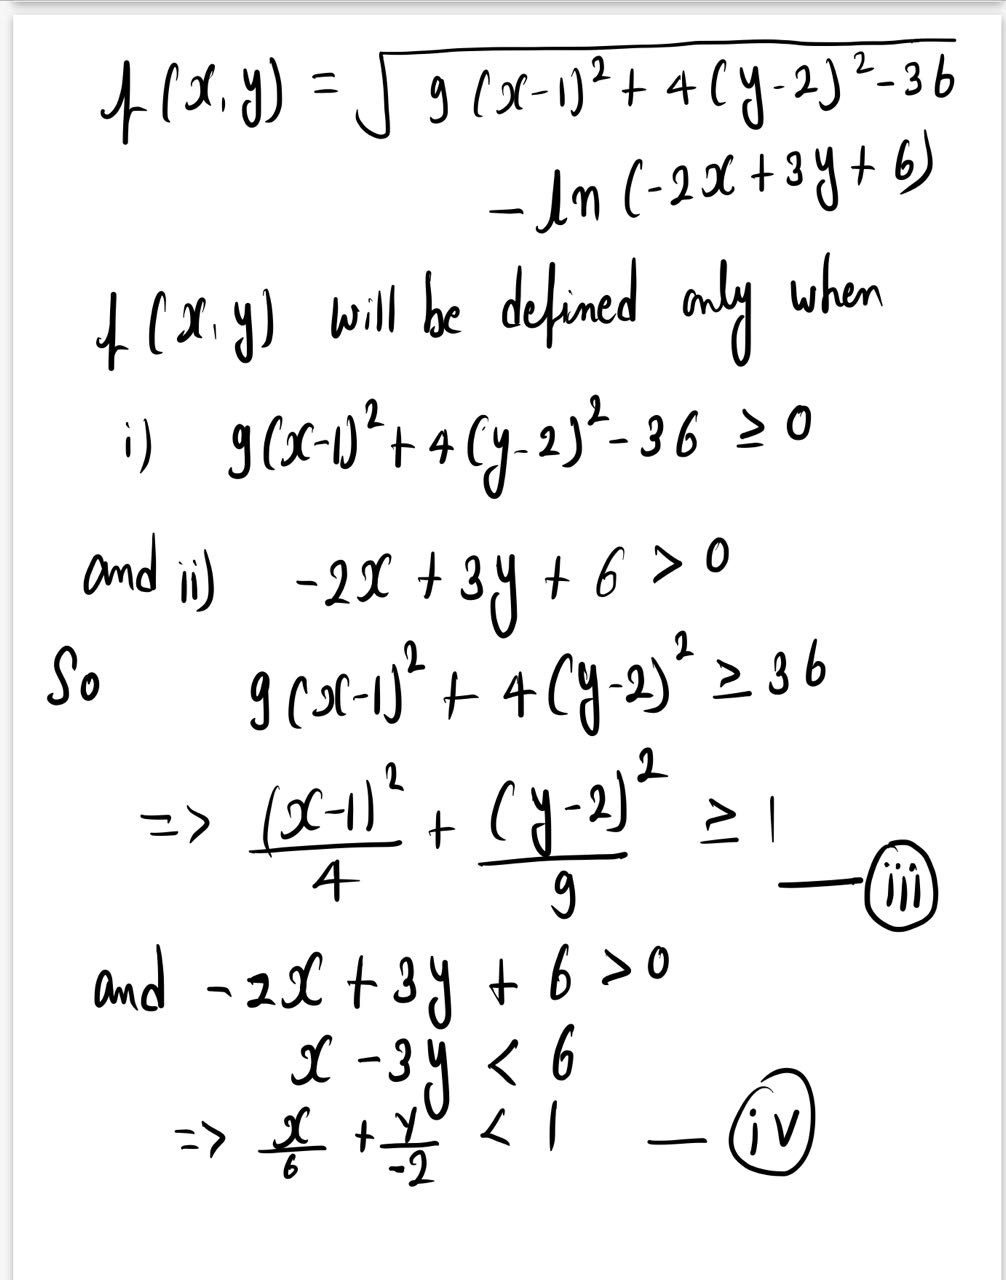 f(x,y) = √(9(x-1)² + 4(y-2)² - 36)
- ln(-2x + 3y + 6)
f(x,y) will be defined only when
i) 9(x-1)² + 4(y-2)² - 36 ≥ 0
and ii) -2x + 3y + 6 > 0
So 9(x-1)² + 4(y-2)² ≥ 36
=> (x-1)²/4 + (y-2)²/9 ≥ 1 — iii
and -2x + 3y + 6 > 0
x - 3y < 6
=> x/6 + y/-2 < 1 — iv